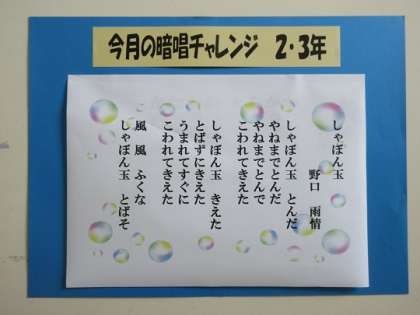 今月の暗唱チャレンジ 2・3年
しゃぼん玉
野口 雨情
しゃぼん玉 とんだ
やねまでとんだ
やねまでとんで
こわれてきえた
しゃぼん玉 きえた
とばずにきえた
うまれてすぐに
こわれてきえた
風 風 ふくな
しゃぼん玉 とばそ